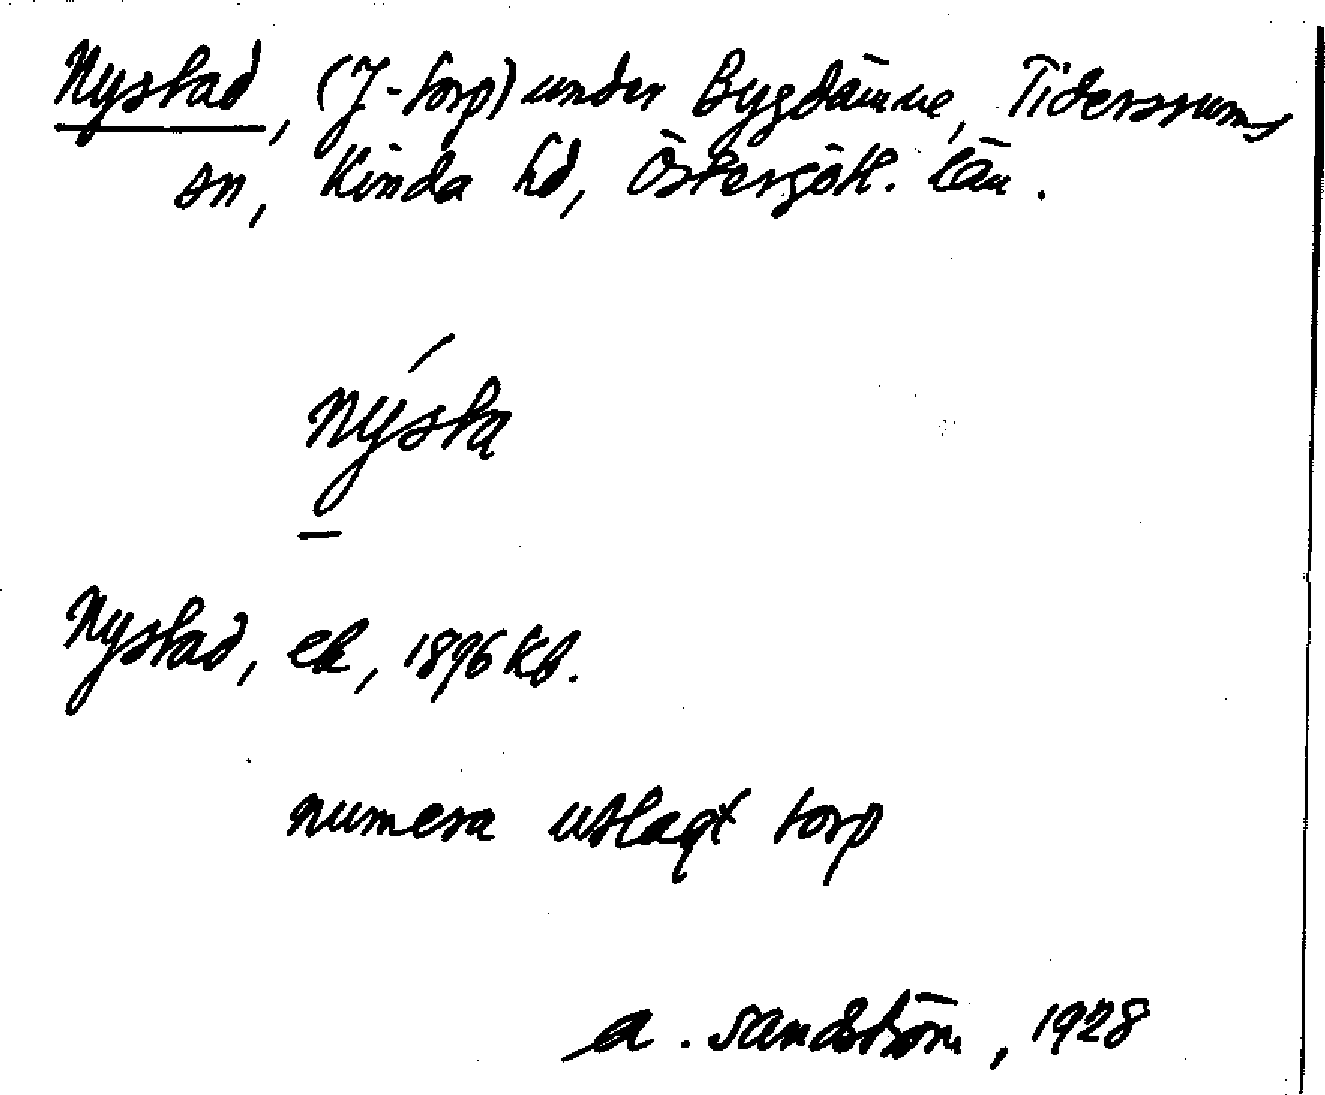 Nystad, (J-torp) under Bygdämne, Tidersrums
sn, Kinda hd, Östergötl. län.
nýsta
Nystad, ek, 1896 Kb.
numera utlagt torp
A. Sandström, 1928